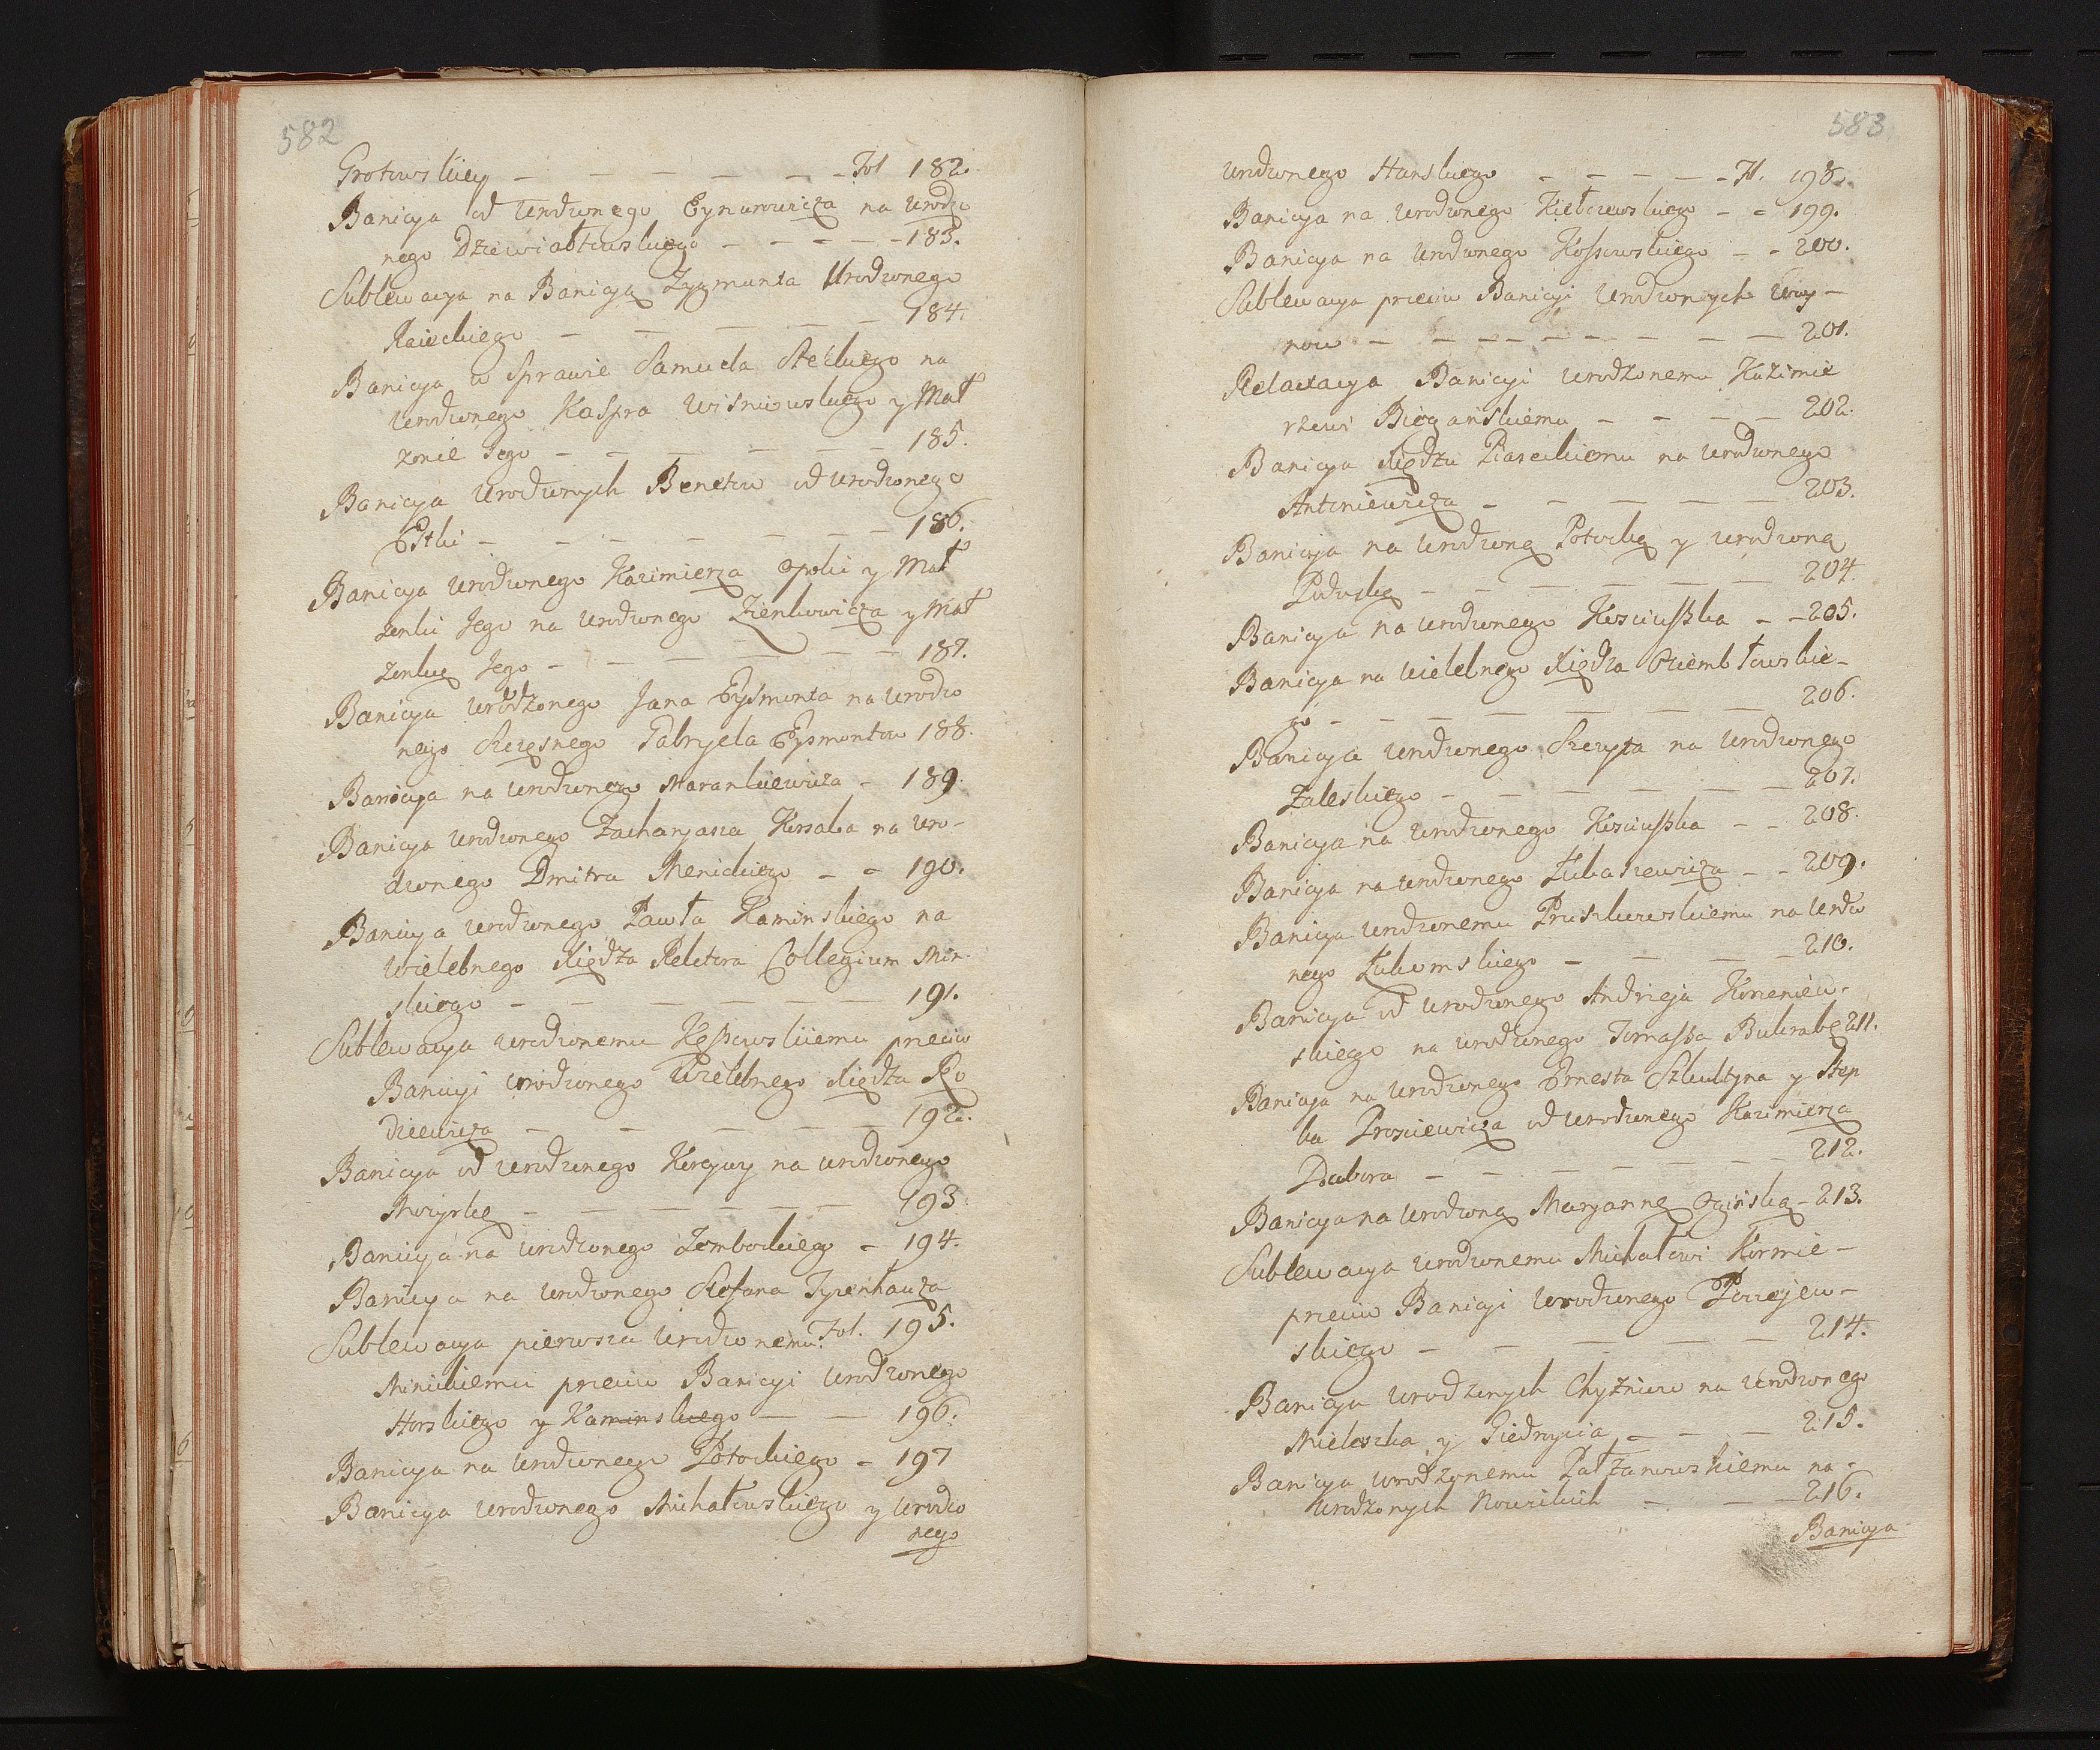 582
Grotowskiey — — — — — — Fol 182.
Banicya od Urodzonego Eynarowicza na Urodzo
nego Dziewiałtowskiego — — — — — 183.
Sublewacya na Banicyą Zygmunta Urodzonego
Raieckiego — — — — — 184.
Banicya w Sprawie Samuela Steckiego na
Urodzonego Kaspra Wisniowskiego y Mał
zonie Jego — — — — — — 185.
Banicya Urodzonych Benetow od Urodzonego
Estki — — — — — — 186.
Banicya Urodzonego Kazimierza Opolki y Mał
zonki Jego na Urodzonego Zienkowicza y Mał
zonkę Jego — — — — — — 187.
Banicya urodzonego Jana Eysmonta na Urodzo
nego Szczęsnego Gabryela Eysmontow 188.
Banicya na Urodzonego Marankiewicza — 189.
Banicya Urodzonego Zacharyasza Korsaka na Uro-
dzonego Dmitra Menickiego — — 190.
Banicya Urodzonego Pawła Kaminskiego na
Wielebnego Xiędza Rektora Collegium Min-
skiego — — — — — — 191.
Sublewacya urodzonemu Kossowskiemu przeciw
Banicyi urodzonego Wielebnego Xiędza Ro
dziewicza — — — — — 192.
Banicya od Urodzonego Korejwy na urodzonego
— — — — — — 193
Banicya na Urodzonego Zembockiego — 194.
Banicya na Urodzonego Stefana Tyzenhauza
Fol. 195.
Sublewacya pierwsza Urodzonemu
Minickiemu przeciw Banicyi Urodzonego
Horskiego y Kaminskiego — — 196.
Banicya na Urodzonego Potockiego — 197
Banicya Urodzonego Michałowskiego y Urodzo
nego
583
Urodzonego Hanskiego — — — — — Fl. 198.
Banicya na Urodzonego Kiełczewskiego — — 199.
Banicya na Urodzonego Kossowskiego — — 200.
Sublewacya przeciw Banicyi Urodzonych Woy-
now — — — — — — — — 201.
Relaxacya Banicyi urodzonemu Kazimie
rzowi Biegańskiemu — — — — 202.
Banicya Xiędzu Piaseckiemu na Urodzonego
Antoniewicza — — — — — 203.
Banicya na Urodzoną Potocką y urodzoną
— — — — — — 204.
Banicya na Urodzonego Kosciuszka — — 205.
Banicya na Wielebnego Xiędza Oziembłowskie-
go — — — — — — — 206.
Banicya Urodzonego Szczyta na Urodzonego
Zaleskiego — — — — — — 207.
Banicya na Urodzonego Kosciuszka — — 208.
Banicya na Urodzonego Łukaszewicza — — 209.
Banicya Urodzonemu Pruszkowskiemu na Urodzo
nego Łukomskiego — — — — 210.
Banicya od Urodzonego Andrzeja Korzeniew-
skiego na Urodzonego Tomasza Bukrabę 211.
Banicya na Urodzonego Ernesta Szkultyna y Step
ka Prosciewicza od Urodzonego Kazimierza
— — — — — — 212.
Banicya na Urodzoną Maryannę Oginską — 213.
Sublewacya Urodzonemu Michałowi Kormie-
przeciw Banicyi Urodzonego Porzejew-
skiego — — — — — 214.
Banicya Urodzonych Chyżniow na Urodzonego
Mieleszka y Giedroycia — — — 215.
Banicya Urodzonemu Pałzanowskiemu na-
Urodzonych Nowickich — — — 216.
Banicya